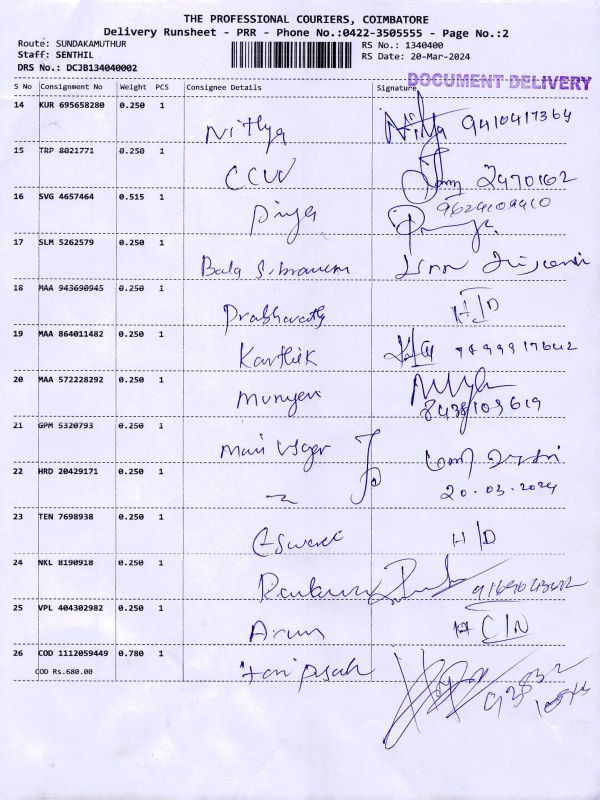 THE PROFESSIONAL COURIERS, COIMBATORE
Delivery Runsheet - PRR - Phone No.:0422-3505555 - Page No.:2
Route: SUNDAKAMUTHUR RS No.: 1340400
Staff: SENTHIL RS Date: 20-Mar-2024
DRS No.: DCJB134040002
DOCUMENT DELIVERY
S No Consignment No Weight PCS Consignee Details Signature
14 KUR 695658280 0.250 1 Nithya Nithya 9410417364
15 TRP 8021771 0.250 1 2470162
16 SVG 4657464 0.515 1 Divya
17 SLM 5262579 0.250 1
18 MAA 943690945 0.250 1 H/D
19 MAA 864011482 0.250 1 Karthik
20 MAA 572228292 0.250 1 8438109619
21 GPM 5320793 0.250 1
22 HRD 20429171 0.250 1 20.03.2024
23 TEN 7698938 0.250 1 H/D
24 NKL 8190918 0.250 1
25 VPL 404302982 0.250 1 Arun
26 COD 1112059449 0.780 1
COD Rs.680.00